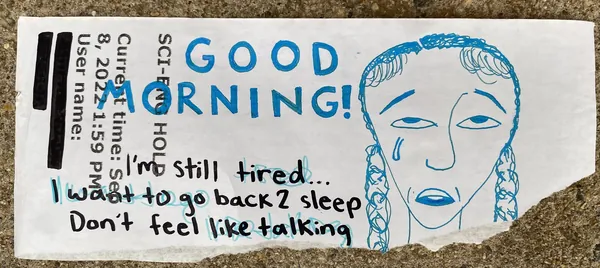 GOOD
MORNING!
I'm still tired...
I want to go back 2 sleep
Don't feel like talking
SCI-ENG HOLD
Current time: Sep
8, 2022 1:59 PM
User name: